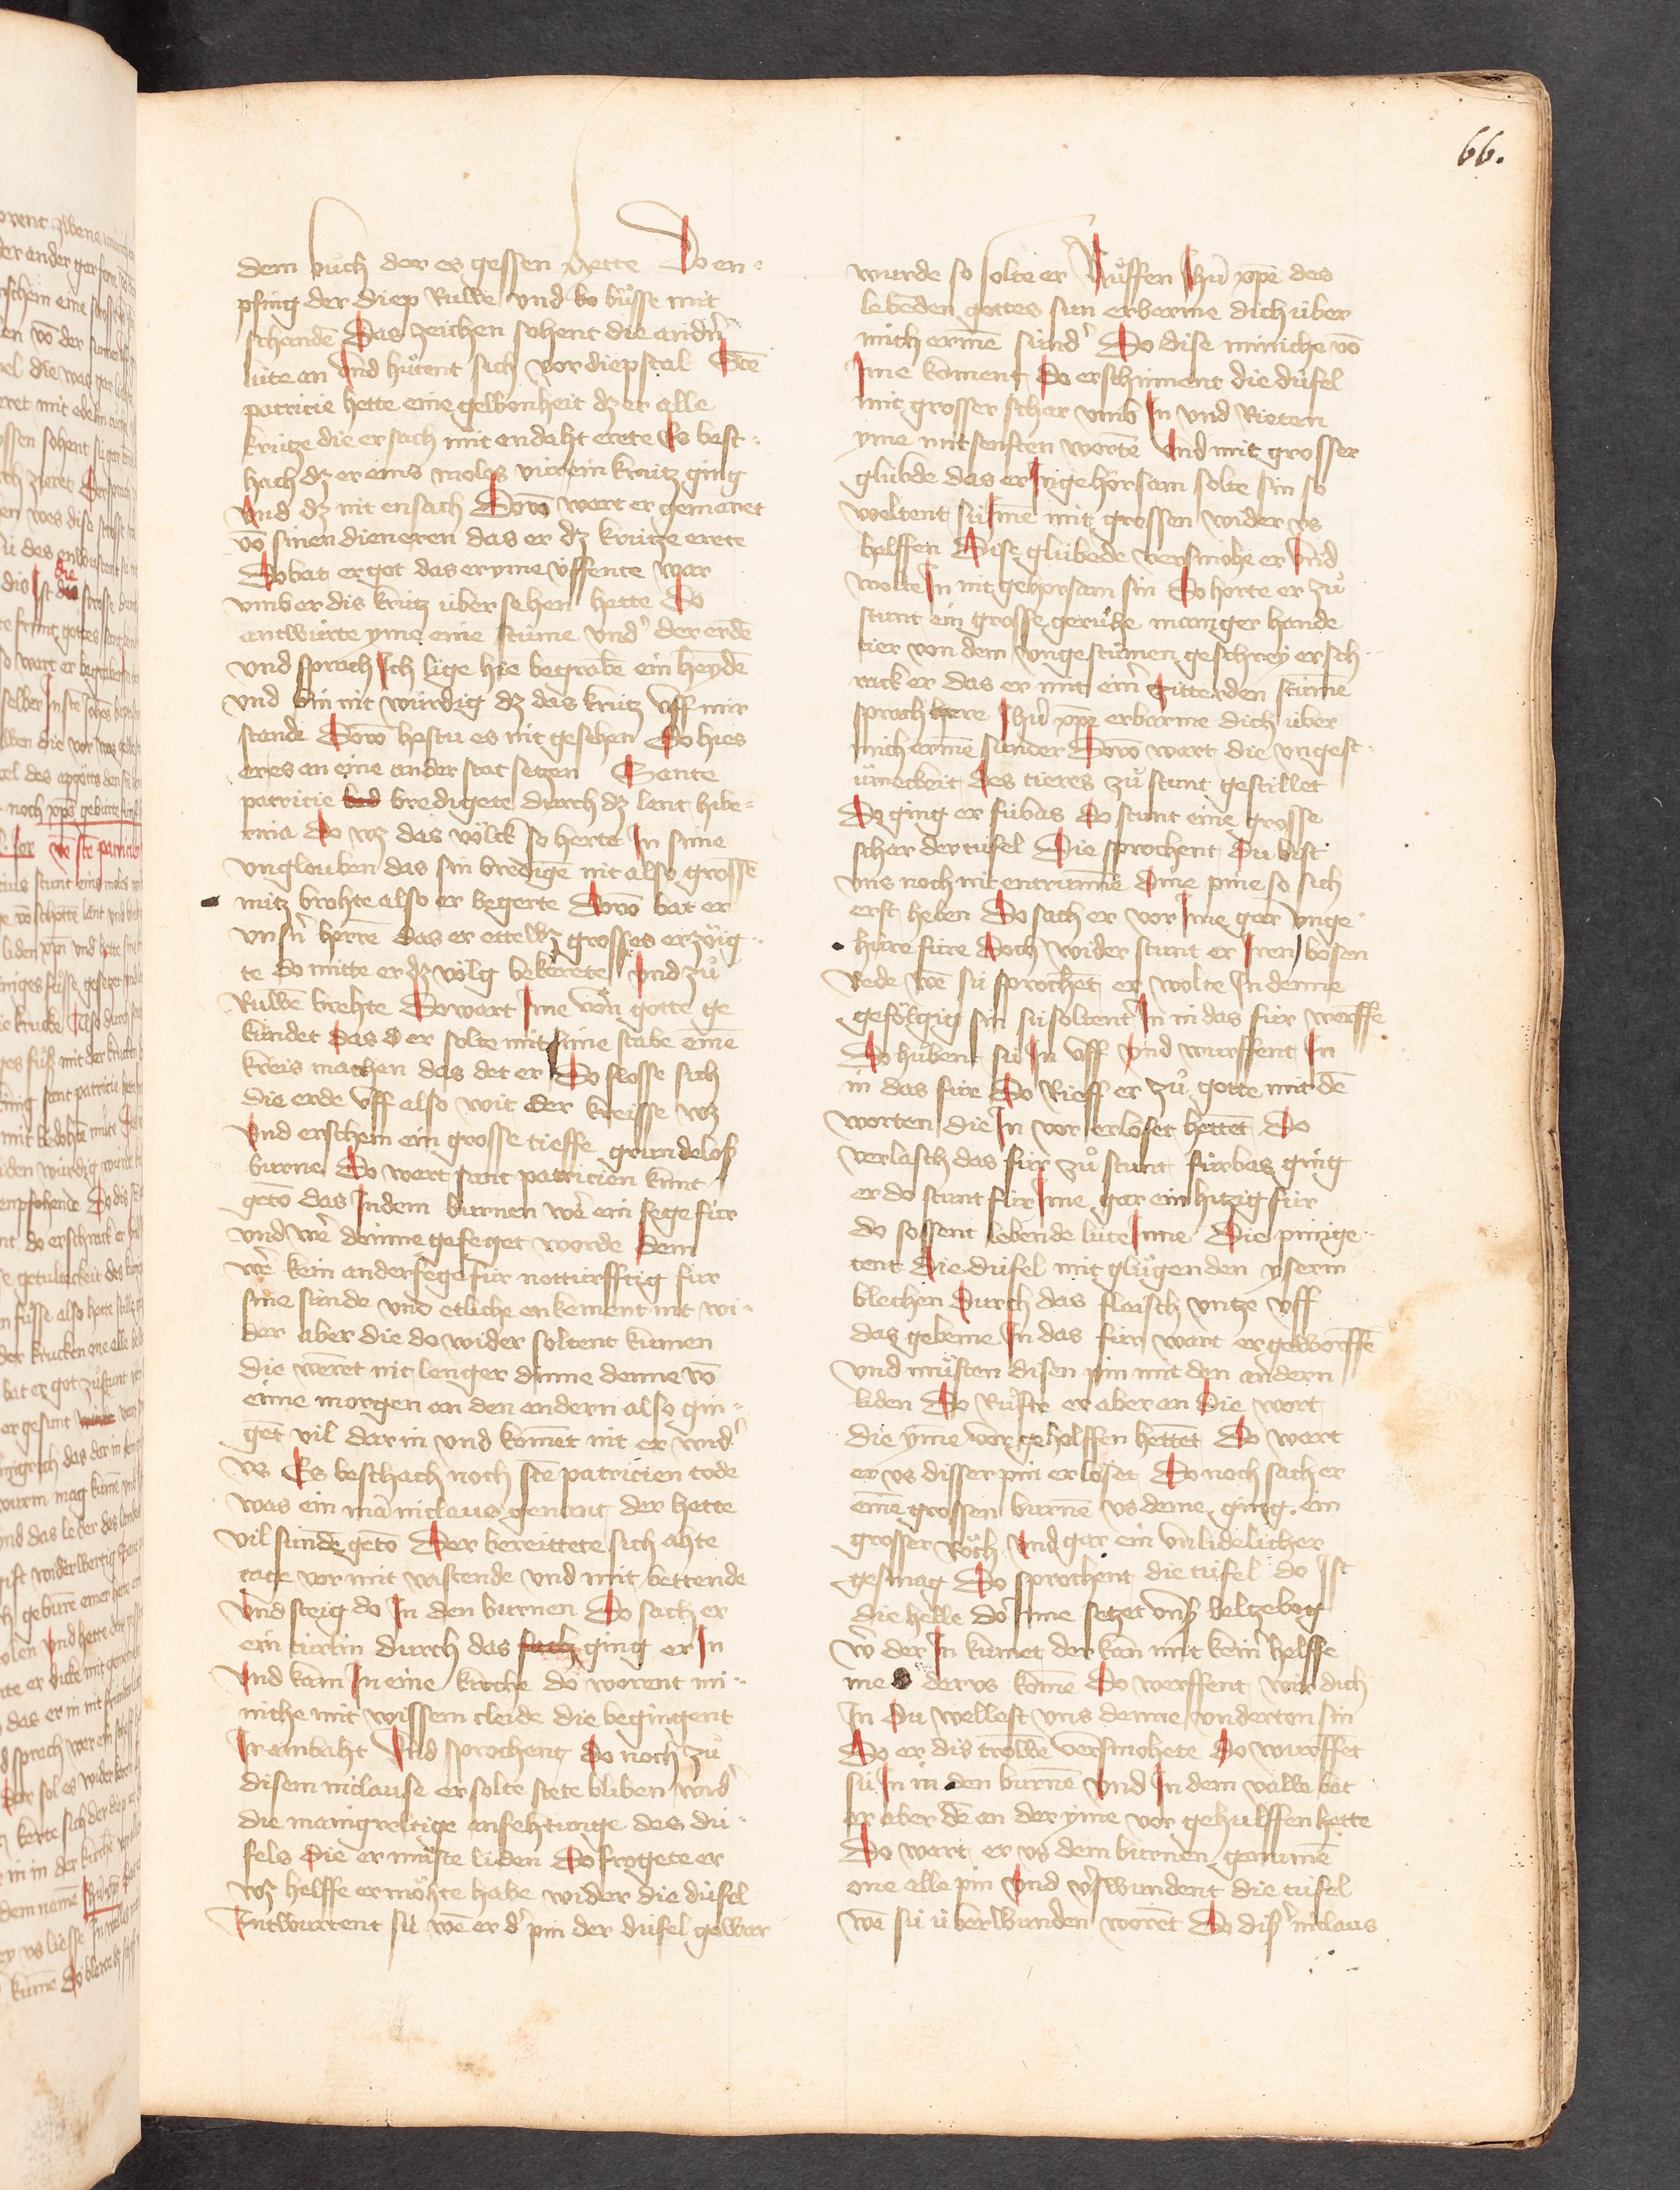 66.
dem buͦch der es gessen hette Do en-
pfing der diep Ruwe vnd bo buͦsse mit
schanden̄ Das zeichen sohent die andn̄
lúte an vnd huͤtent sich vor diepstal Stē
patricie hette eine gewonheit dz er alle
krútze die er sach mit andaht erete Es best-
hach dz er eins moles vúr ein krútz ging
vnd dz nit ensach Dovō wart er gemanet
vō sinen dieneren das er dz krútze erete
Do bat er got das er yme vffente war
vmb er dis krútz úber sehen hette Do
antwúrte yme eine stime vnd' der erdē
vnd sprach Ich lige hie begrabē ein heydē
vnd bin nit wúrdig dz das krútz vff mir
stande Dovō hastu es nit gesehen Do hies
er es an eine ander stat setzen Sante
patricie bred bredigete durch dz lant hibe-
rnia do wz das völck so herte In sime
vnglouben das sin bredigē nit also grossē
nútz brohte also er begerte Dovō bat er
vnsn̄ herrē das er ettewz grosses erzöig-
te do mitte er dz völg bekerete vnd zuͦ
Ruwē brehte Do wart Ime von gotte ge
kúndet das d er solte mit sime stabe einē
kreis machen das det er Do slosse sich
die erde vff also wit der kreisse wz
vnd erschein ein grosse tieffe grundelos
burne Do wart sant patricien kunt
getō das Indem burnen wer ein fegefúr
vnd wer dinne gefeget worde dem
wer kein ander fege fúr notturfftig fúr
sine súnde vnd etliche enkement nit wi-
der aber die do wider soltent kumen
die werēt nit lenger dinne denne vō
eime morgen an den andern also gin-
gēt vil dar in vnd komēt nit er wid'
vs Es beschach noch stē patricien tode
was ein mā niclaus genant der hette
vil súnde getō Der bereittete sich ahte
tage vor mit vastende vnd mit bettende
vnd steig do In den burnen Do sach er
ein túrlin durch das sach ging er In
vnd kam In eine kirche do worent mi-
niche mit wissem cleide die begingent
Ir ambaht vnd sprochent do noch zuͦ
disem niclause er solte stete bliben vnd'
die manigveltige anfehtunge des dú-
fels die er muͤste liden Do frogete er
wz helffe er möhte habē wider die dúfel
Antwurtent sú wē er d' pin der dúfel gewar
wurde so solte er Ruͦffen Ihū xp̄e des
lebēden gottes sun erbarme dich úber
mich armē súnd' Do dise múniche vō
Ime koment do erschinent die dúfel
mit grosser schar vmb In vnd Rieten
yme mit senften wortē vnd mit grosser
glúbde das er In gehorsam solte sin so
woltent sú Ime mit grossen wider vs
helffen Dise glúbede versmohe er vnd
wolte In nit gehorsam sin Do horte er zuͦ
stunt ein grosse gerúhe maniger hande
tier von dem vngestúmen geschrey ersch-
rack er das er mit eim zitterden stimē
sprach herre Ihū xp̄e erbarme dich úber
mich armē súnder Dovō wart die vngest-
úmekeit des tieres zuͦ stunt gestillet
Do ging er fúbas do stunt eine grosse
schar der túfel Die sprochent du bist
vns noch nit entrunnē dine pine so sich
erst heben Do sach er vor Ime gar vnge-
húre fúre Doch wider stunt er Iren bösen
Rede wē sú sprochēt er wolte In denne
gefölgig sin sú soltent In in das fúr werffē
Do huͦbent sú In vff vnd wurffent In
in das fúr Do Rieff er zuͦ gotte mit dē
worten die In vor erlöset hettēt Do
verlasch das fúr zuͦ stunt fúrbas ging
er do stunt fúr Ime gar ein hitzig fúr
do sossent lebende lúte Inne Die pinige-
tent die dúfel mit gluͤgenden yserin
blechen durch das fleisch vntze vff
das gebeine In das fúr wart er geworffē
vnd muͤsten disen pin mit den andern
liden Do Ruͦfte er aber an die wort
die yme vor geholffen hettēt Do wart
er vs disser pin erlöset Do noch sach er
einē grossen burnē vs deme ging ein
grosser Rouch vnd gar ein vnlidelicher
gesmag Do sprochent die túfel do Ist
die helle do Inne setzet vnß beltzebog
wer der In kumet der kan mit keim helffe
me dar vs komē Do werffent wir dich
In du wellest vns denne vnderton sin
Do er dis trowē versmohete Do wurffēt
sú In in den burnē vnd In dem valle bat
er aber dē an der yme vor gehulffen hette
Do wart er vs dem burnen genumē
one alle pin vnd v'swundent die túfel
wē sú úberwunden worēt Do dis' niclaus